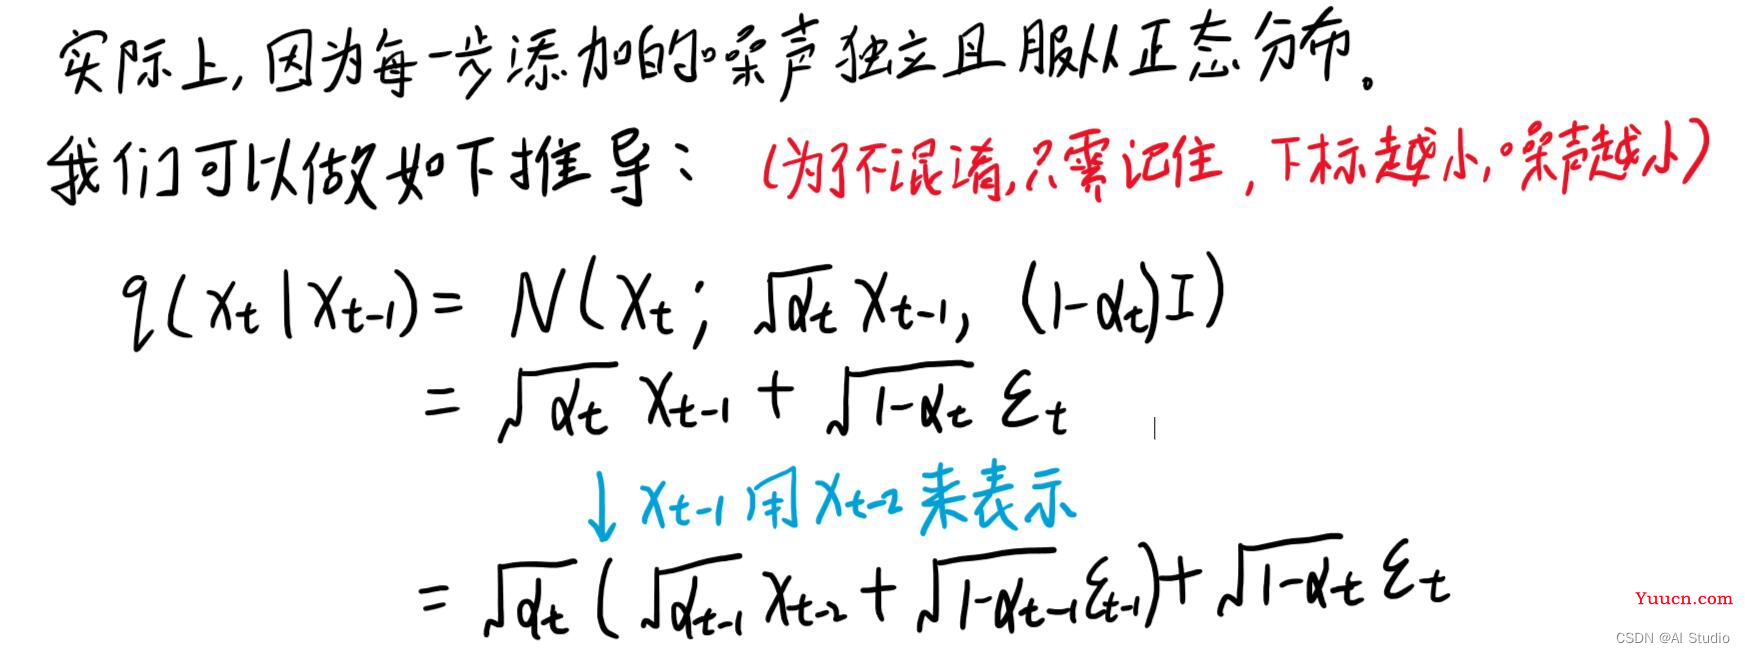 实际上,因为每一步添加的噪声独立且服从正态分布。
我们可以做如下推导: (为了不混淆,只需记住,下标越小,噪声越小)
q(xₜ|xₜ₋₁) = N(xₜ; √αₜ xₜ₋₁, (1-αₜ)I)
= √αₜ xₜ₋₁ + √(1-αₜ) εₜ
↓ xₜ₋₁用xₜ₋₂来表示
= √αₜ (√αₜ₋₁ xₜ₋₂ + √(1-αₜ₋₁) εₜ₋₁) + √(1-αₜ) εₜ
Yuucn.com
CSDN @AI Studio